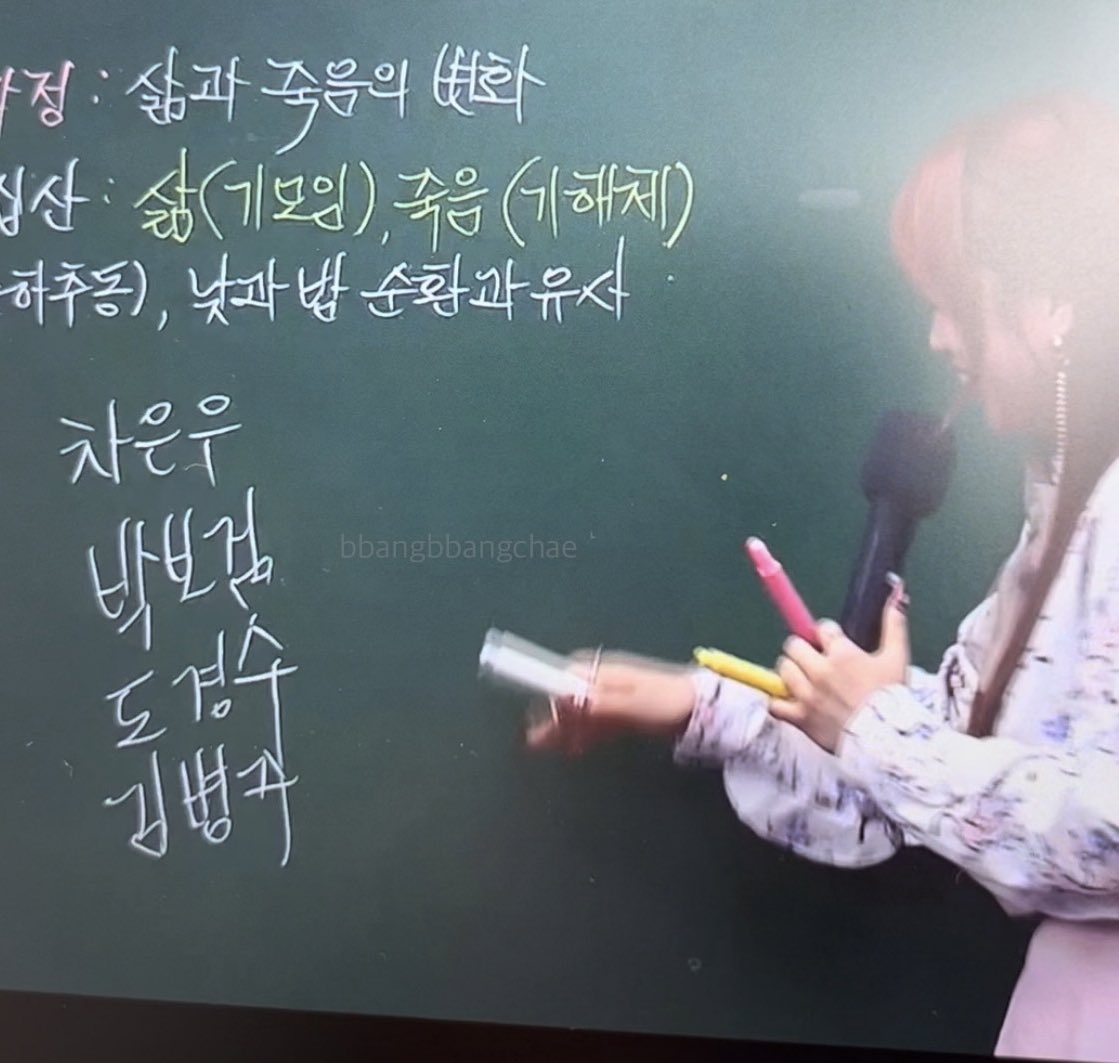 정: 삶과 죽음의 변화
산: 삶(기모임), 죽음(기해제)
하추동), 낮과 밤 순환과 유사
차은우
박보검
bbangbbangchae
도경수
김병규